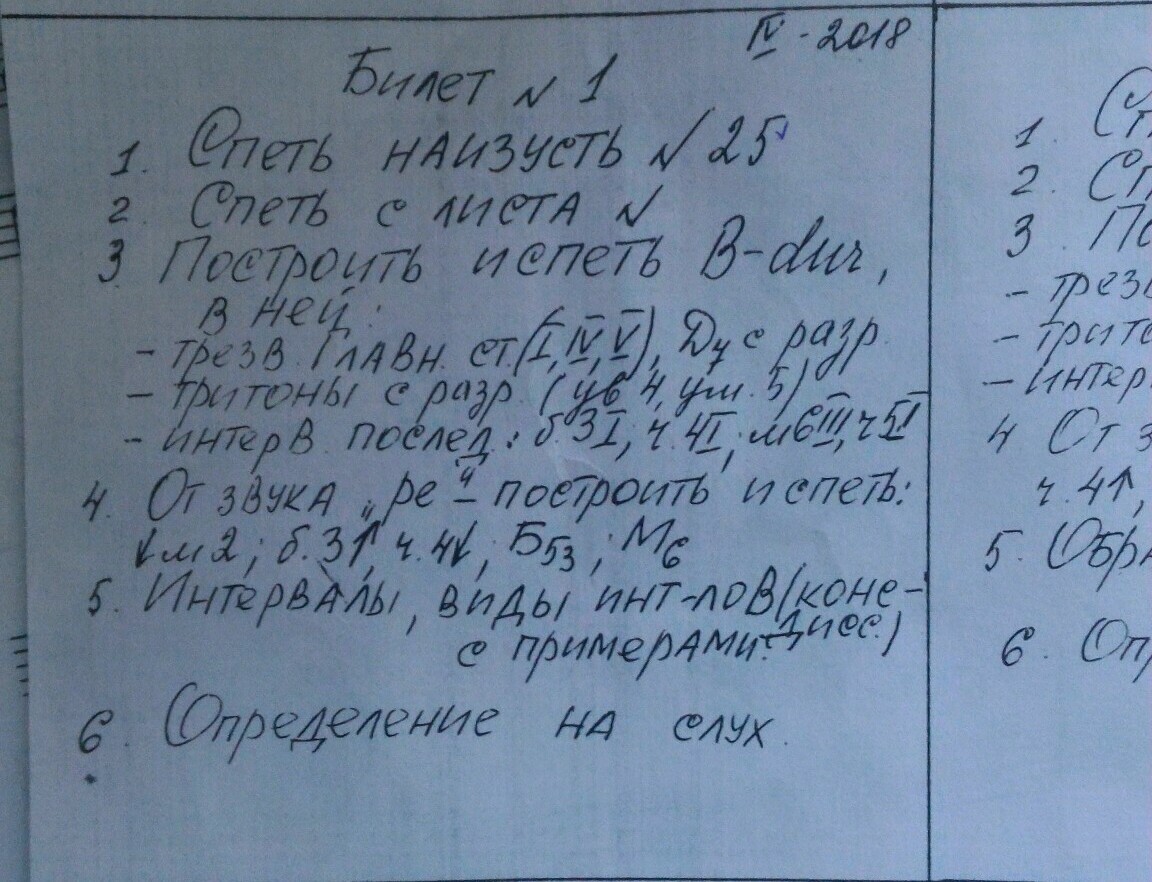 IV - 2018
Билет № 1
1. Спеть наизусть № 25
2. Спеть с листа №
3 Построить и спеть B-dur,
в ней:
- трезв. главн. ст. (I, IV, V), D7 с разр.
- тритоны с разр. (ув 4, ум. 5)
- интерв. послед.: б.3 I, ч. 4 I, м6 III, ч5
4. От звука „ре" - построить и спеть:
↓м2; б.3↑, ч.4↓, Б53; М6
5. Интервалы, виды инт-лов (конс-
с примерами. дисс.)
6. Определение на слух.
1. Сп
2. Сп
3. По
- трезв
- трито
- интер
4 От з
ч.4↑,
5. Обра
6. Опр